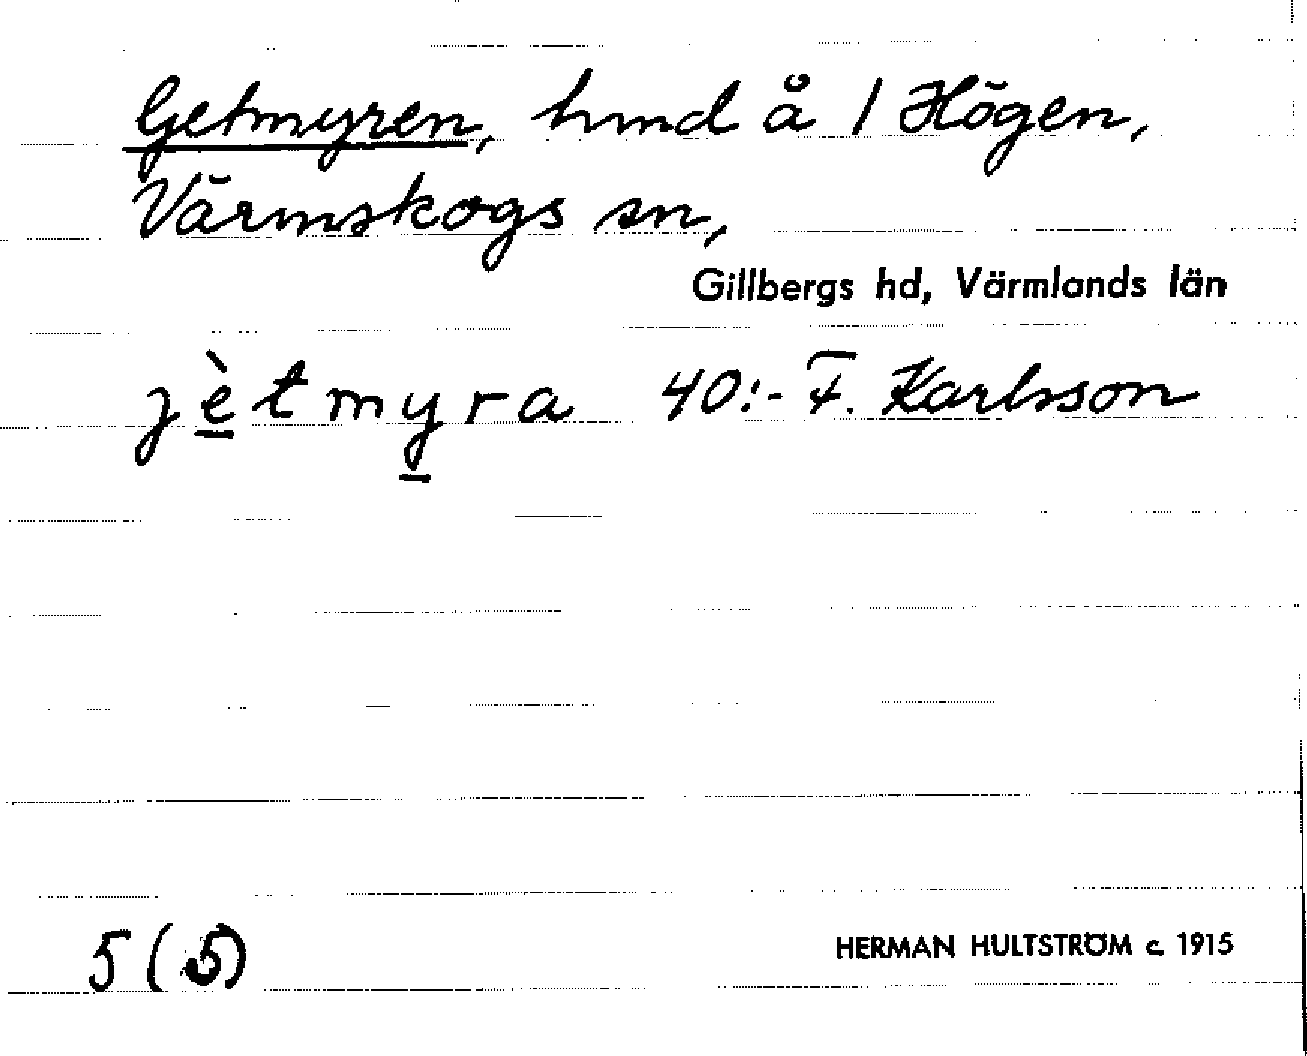 Getmyren, hmd å 1 Högen,
Värmskogs sn,
Gillbergs hd, Värmlands län
jètmyra 40:- F. Karlsson
5 (5)
HERMAN HULTSTRÖM c. 1915